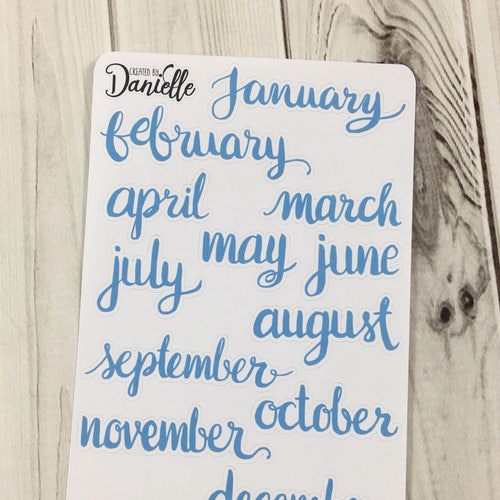 CREATED BY:
Danielle
january
february
april march
may june
july
august
september
october
november
december